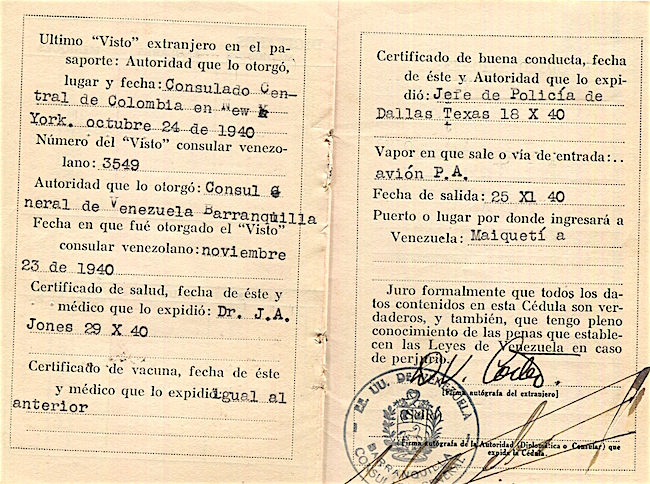 Ultimo “Visto” extranjero en el pa-
saporte: Autoridad que lo otorgó,
lugar y fecha: Consulado Cen-
tral de Colombia en New
York. octubre 24 de 1940
Número del “Visto” consular venezo-
lano: 3549
Autoridad que lo otorgó: Consul G
neral de Venezuela Barranquillia
Fecha en que fué otorgado el “Visto”
consular venezolano: noviembre
23 de 1940
Certificado de salud, fecha de éste y
médico que lo expidió: Dr. J.A.
Jones 29 X 40
Certificado de vacuna, fecha de éste
y médico que lo expidió: igual al
anterior
Certificado de buena conducta, fecha
de éste y Autoridad que lo expi-
dió: Jefe de Policía de
Dallas Texas 18 X 40
Vapor en que sale o vía de entrada:..
avión P.A.
Fecha de salida: 25 X1 40
Puerto o lugar por donde ingresará a
Venezuela: Maiquetí a
Juro formalmente que todos los da-
tos contenidos en esta Cédula son ver-
daderos, y también, que tengo pleno
conocimiento de las penas que estable-
cen las Leyes de Venezuela en caso
de perjurio.
[Firma autógrafa del extranjero]
EE. UU. DE VENEZUELA
BARRANQUILLA
CONSULADO GENERAL
Firma autógrafa de la Autoridad (Diplomática o Consular) que
expide la Cédula.